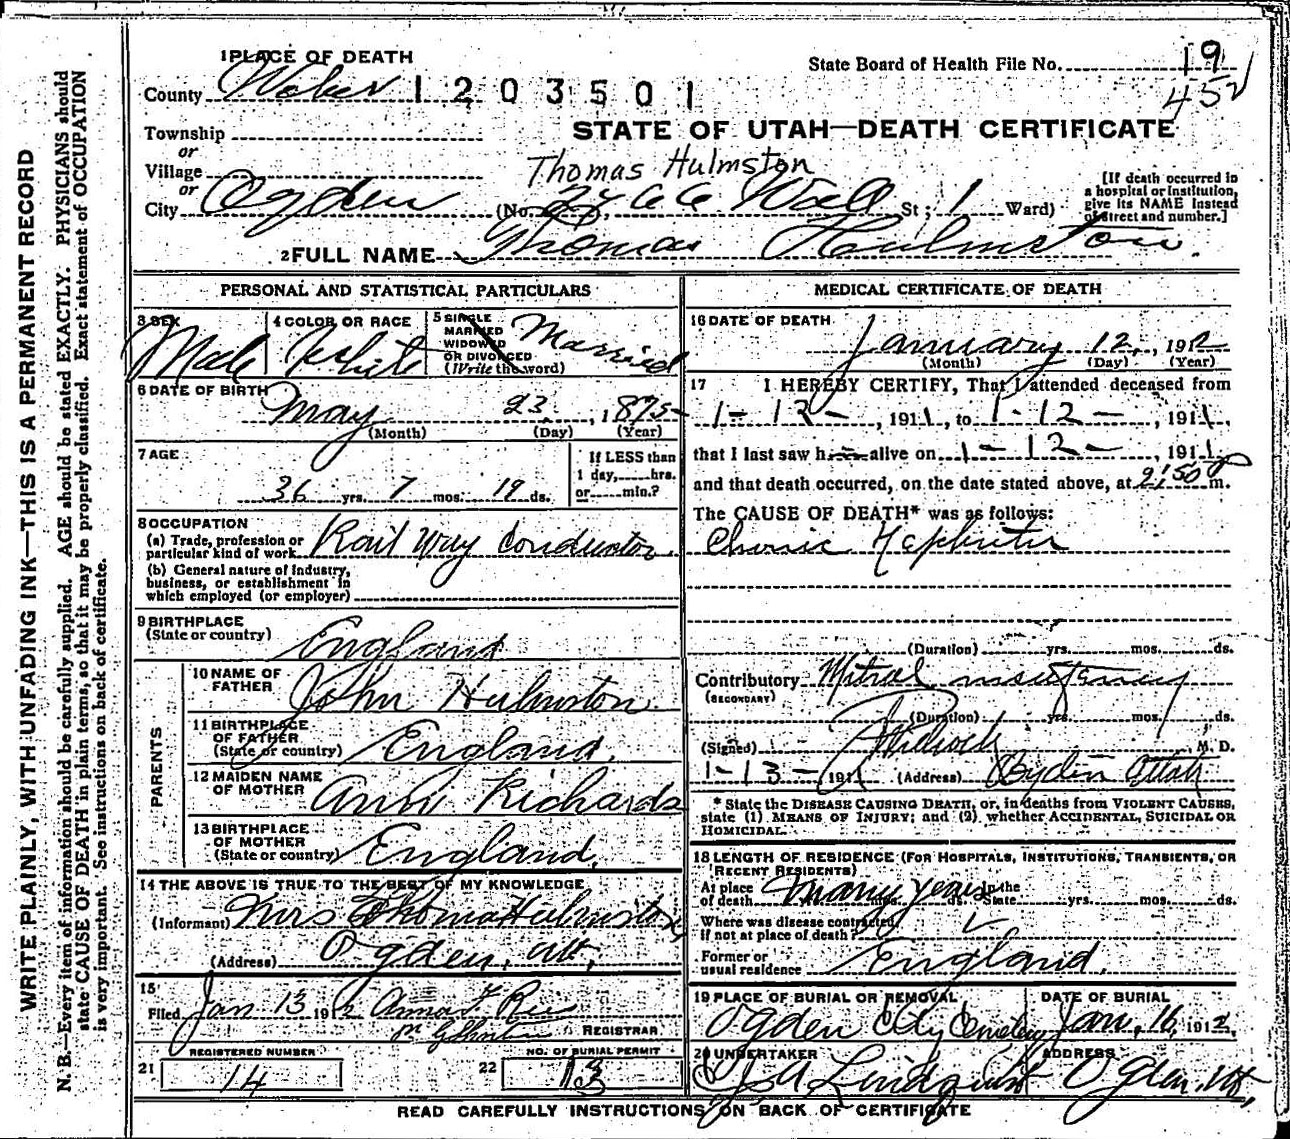 WRITE PLAINLY, WITH UNFADING INK—THIS IS A PERMANENT RECORD
N. B.—Every item of information should be carefully supplied. AGE should be stated EXACTLY. PHYSICIANS should
state CAUSE OF DEATH in plain terms, so that it may be properly classified. Exact statement of OCCUPATION
is very important. See instructions on back of certificate.
1 PLACE OF DEATH
State Board of Health File No. 19
452
County Weber 1203501
STATE OF UTAH—DEATH CERTIFICATE
Township
or
Village
or
Thomas Hulmston
City Ogden (No. 2766 Wall St; 1 Ward)
[If death occurred in
a hospital or institution,
give its NAME instead
of street and number.]
2 FULL NAME Thomas Hulmston.
PERSONAL AND STATISTICAL PARTICULARS
3 SEX
Male
4 COLOR OR RACE
White
5 SINGLE
MARRIED
WIDOWED
OR DIVORCED
(Write the word)
Married
6 DATE OF BIRTH
May 23, 1875
(Month) (Day) (Year)
7 AGE
36 yrs. 7 mos. 19 ds.
If LESS than
1 day, hrs.
or min.?
8 OCCUPATION
(a) Trade, profession or
particular kind of work Rail Way Conductor
(b) General nature of industry,
business, or establishment in
which employed (or employer)
9 BIRTHPLACE
(State or country) England
PARENTS
10 NAME OF
FATHER John Hulmston.
11 BIRTHPLACE
OF FATHER
(State or country) England.
12 MAIDEN NAME
OF MOTHER Ann Richards
13 BIRTHPLACE
OF MOTHER
(State or country) England.
14 THE ABOVE IS TRUE TO THE BEST OF MY KNOWLEDGE
(Informant) Mrs Thomas Hulmston
(Address) Ogden, Ut.
15
Filed Jan 13 1912 Anna F. Rew
REGISTRAR
REGISTERED NUMBER
21 14
NO. OF BURIAL PERMIT
22 13
MEDICAL CERTIFICATE OF DEATH
16 DATE OF DEATH
January 12, 1912
(Month) (Day) (Year)
17 I HEREBY CERTIFY, That I attended deceased from
1-12-, 1911, to 1-12-, 1911,
that I last saw h alive on 1-12-, 1911
and that death occurred, on the date stated above, at 2:50 P m.
The CAUSE OF DEATH* was as follows:
Chronic Nephritis
(Duration) yrs. mos. ds.
Contributory Mitral insufficiency
(SECONDARY)
(Duration) yrs. mos. ds.
(Signed) M. D.
1-13-1911 (Address) Ogden Utah
* State the DISEASE CAUSING DEATH, or, in deaths from VIOLENT CAUSES,
state (1) MEANS OF INJURY; and (2) whether ACCIDENTAL, SUICIDAL OR
HOMICIDAL.
18 LENGTH OF RESIDENCE (FOR HOSPITALS, INSTITUTIONS, TRANSIENTS, OR
RECENT RESIDENTS)
At place
of death many years ds. In the
State yrs. mos. ds.
Where was disease contracted,
if not at place of death?
Former or
usual residence England.
19 PLACE OF BURIAL OR REMOVAL
Ogden City Cemetery
DATE OF BURIAL
Jan. 16, 1912,
20 UNDERTAKER
J A Lindquist
ADDRESS
Ogden, Ut,
READ CAREFULLY INSTRUCTIONS ON BACK OF CERTIFICATE